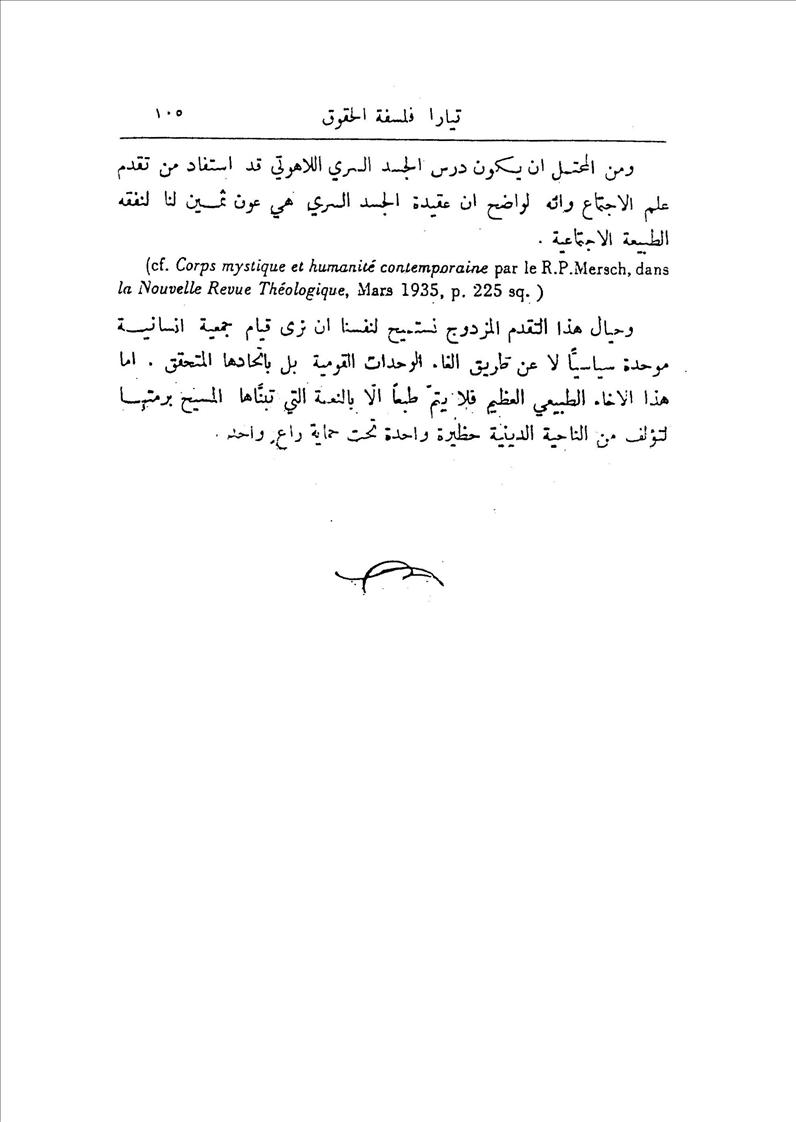 تيارا فلسفة الحقوق ١٠٥
ومن المحتمل ان يكون درس الجسد السري اللاهوتي قد استفاد من تقدم
علم الاجتماع وانه لواضح ان عقيدة الجسد السري هي عون ثمين لنا لنفقه
الطبيعة الاجتماعية .
(cf. Corps mystique et humanité contemporaine par le R.P.Mersch, dans
la Nouvelle Revue Théologique, Mars 1935, p. 225 sq. )
وحيال هذا التقدم المزدوج نستبيح لنفسنا ان نرى قيام جمعية انسانية
موحدة سياسيًّا لا عن طريق الغاء الوحدات القومية بل باتحادها المتحقق . اما
هذا الاخاء الطبيعي العظيم فلا يتمّ طبعاً الّا بالنعمة التي تبنَّاها المسيح برمتهـا
لتؤلف من الناحية الدينية حظيرة واحدة تحت حماية راعٍ واحد .